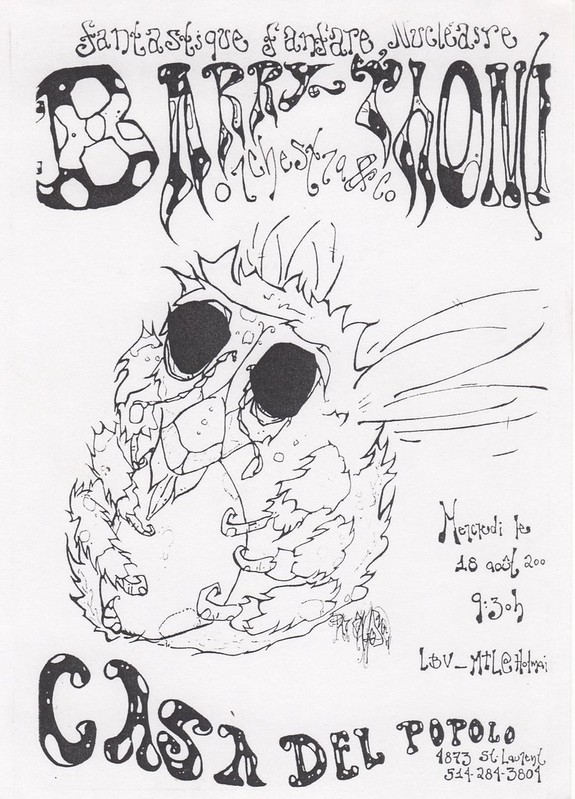 fantastique fanfare Nucléaire
BARRY THONI
orchestra & Co.
Mercredi le
18 août 200
9:30h
LBV_MTL@Hotmai
CASA DEL POPOLO
4873 St-Laurent
514-284-3804